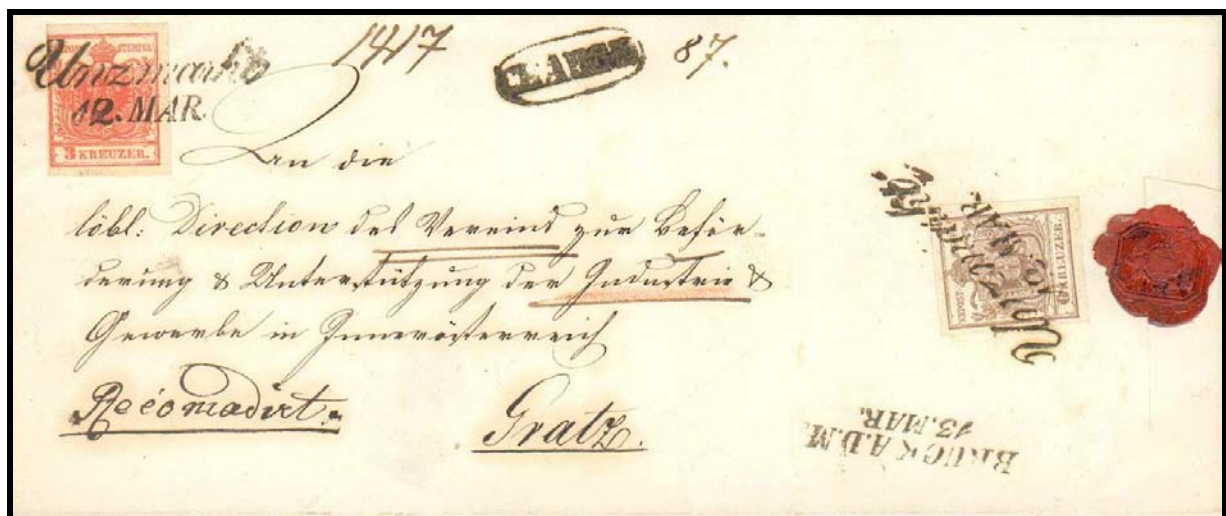 Unzmarkt
12. MAR.
1417
87.
3 KREUZER.
An die
löbl: Direction des Vereins zur Beför-
derung & Unterstützung der Industrie &
Gewerbe in Innerösterreich
Recomadirt.
Gratz.
Unzmarkt
MAR.
6 KREUZER.
BRUCK A.D.M.
13. MAR.